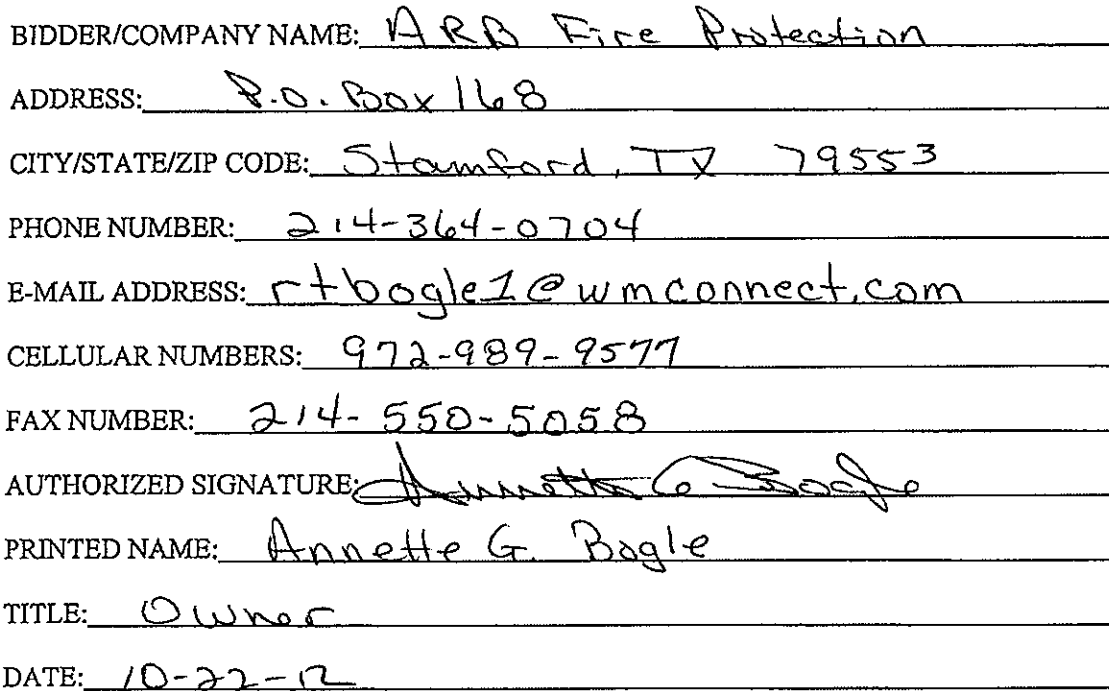 BIDDER/COMPANY NAME: ARB Fire Protection
ADDRESS: P.O. Box 168
CITY/STATE/ZIP CODE: Stamford, TX 79553
PHONE NUMBER: 214-364-0704
E-MAIL ADDRESS: rtbogle1@wmconnect.com
CELLULAR NUMBERS: 972-989-9577
FAX NUMBER: 214-550-5058
AUTHORIZED SIGNATURE: Annette G Bogle
PRINTED NAME: Annette G. Bogle
TITLE: Owner
DATE: 10-22-12